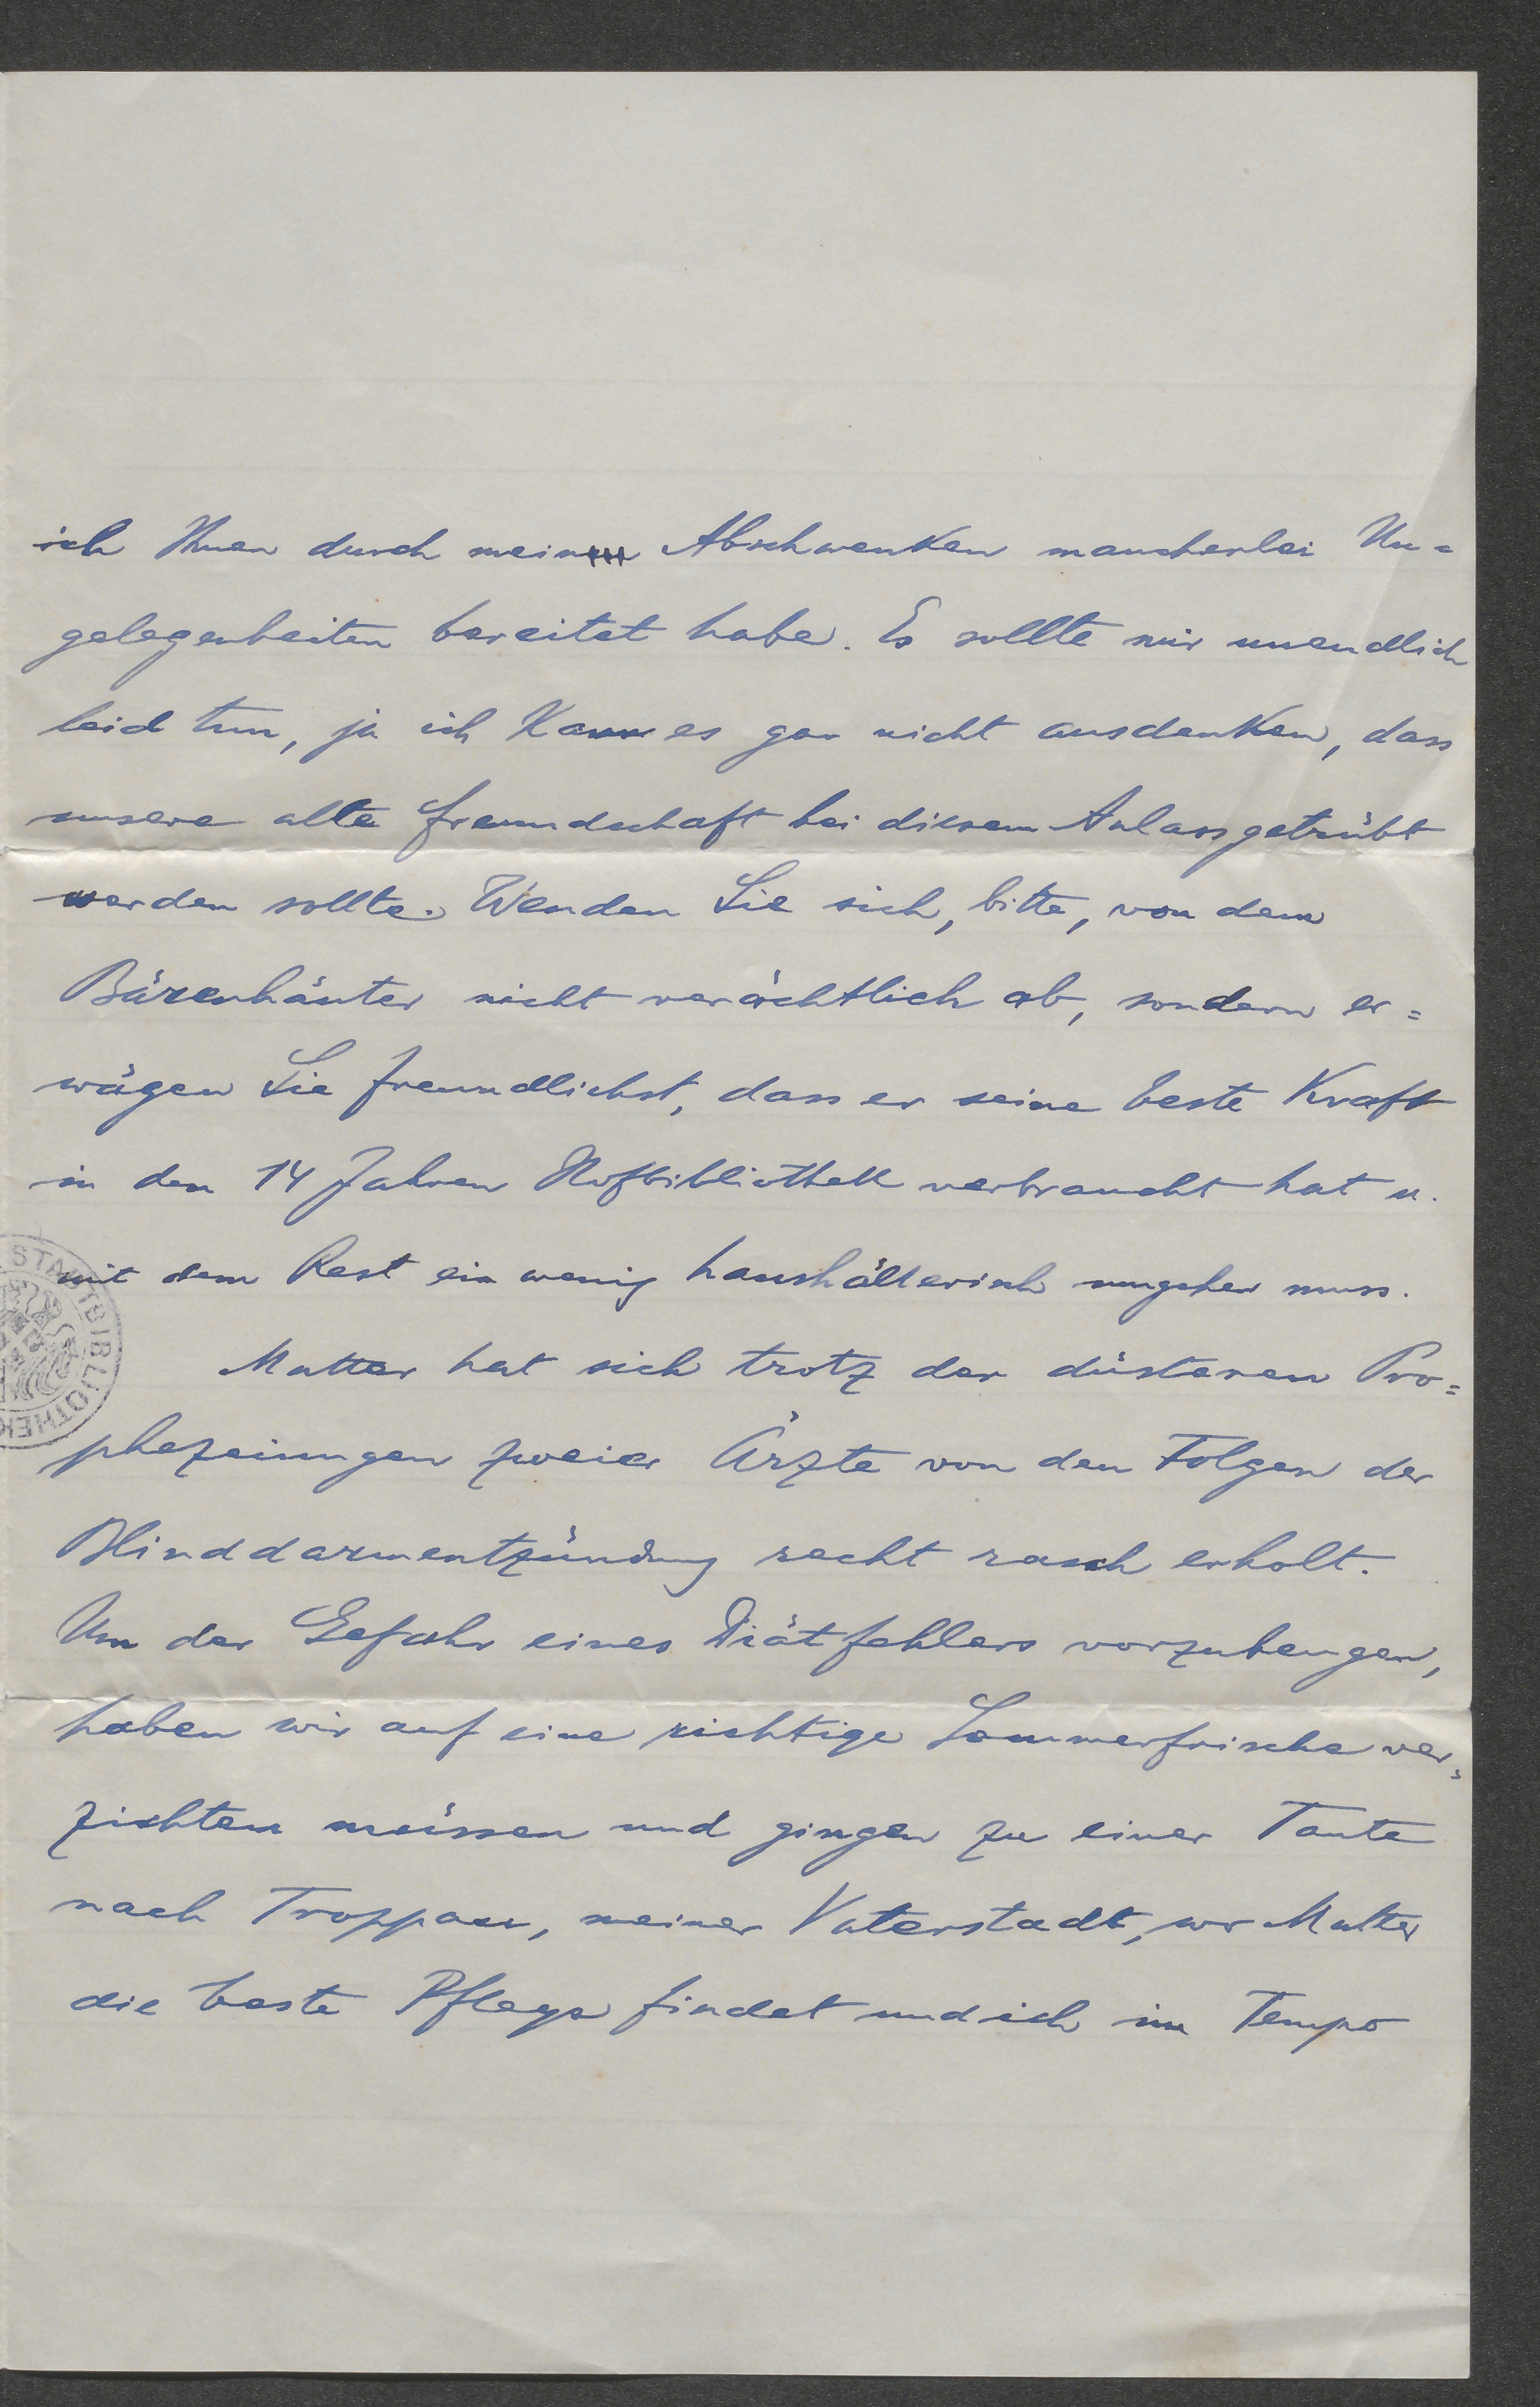 ich Ihnen durch mein Abschwenken mancherlei Un=
gelegenheiten bereitet habe. Es sollte mir unendlich
leid tun, ja ich kann es gar nicht ausdenken, dass
unsere alte Freundschaft bei diesem Anlass getrübt
werden sollte. Wenden Sie sich, bitte, von dem
Bärenhäuter nicht verächtlich ab, sondern er=
wägen Sie freundlichst, dass er seine beste Kraft
in den 14 Jahren Hofbibliothek verbraucht hat u.
mit dem Rest ein wenig haushälterisch umgehen muss.
Mutter hat sich trotz der düsteren Pro=
phezeiungen zweier Ärzte von den Folgen der
Blinddarmentzündung recht rasch erholt.
Um der Gefahr eines Diätfehlers vorzubeugen,
haben wir auf eine richtige Sommerfrische ver=
zichten müssen und gingen zu einer Tante
nach Troppau, meiner Vaterstadt, wo Mutter
die beste Pflege findet und ich im Tempo
STADTBIBLIOTHEK